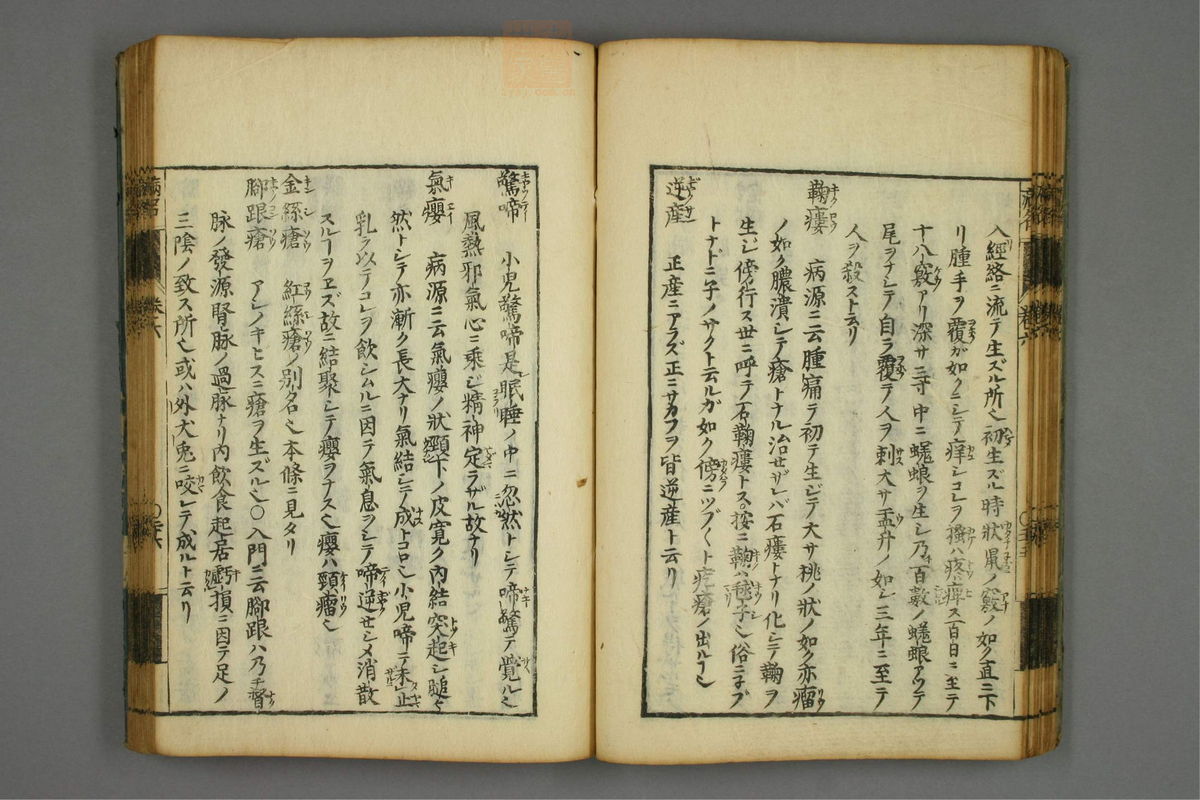 入經絡ニ流テ生ズル所也初生ズル時狀鼠ノ竅ノ如ク直ニ下
リ腫手ヲ覆ガ如クニシテ痒シコレヲ搔バ疼痺ス百日ニ至テ
十八竅アリ深サ三寸中ニ蜣蜋ヲ生シ乃百數ノ蜣蜋アツテ
尾ヲナシテ自ラ覆テ人ヲ刺大サ盂升ノ如シ三年ニ至テ
人ヲ殺ストミヘリ
鞠瘻 病源ニ云腫痛テ初テ生ジテ大サ桃ノ狀ノ如ク亦瘤
ノ如ク膿潰シテ瘡トナル治セザレバ石瘻トナリ化シテ鞠ヲ
生ジ傍行ス世ニ呼テ石鞠瘻トス按ニ鞠ハ毬子也俗ニ子ブ
トナドニ子ノサクト云ルガ如ク傍ニツブ〱ト疙瘡ノ出ル也
逆産 正産ニアラズ正ニサカフヲ皆逆産ト云リ
驚啼 小兒驚啼是眠睡ノ中ニ忽然トシテ啼驚テ覺ル也
風熱邪氣心ニ乘ジ精神定ラザル故ナリ
氣癭 病源ニ云氣癭ノ狀頸下ノ皮寬ク內結突起シ䐔々
然トシテ亦漸ク長大ナリ氣結シテ成トコロ也小兒啼テ未止
乳ヲ以テコレヲ飮シムルニ因テ氣息ヲシテ啼逆セシメ消散
スルヿヲヱズ故ニ結聚シテ癭ヲナス也癭ハ頸瘤也
金絲瘡 紅絲瘡ノ別名也本條ニ見タリ
腳跟瘡 アシノキヒスニ瘡ヲ生ズル也〇入門ニ云腳跟ハ乃チ督
脉ノ發源腎脉ノ過脉ナリ內飮食起居虧損ニ因テ足ノ
三陰ノ致ス所也或ハ外犬兎ニ咬レテ成ルト云リ